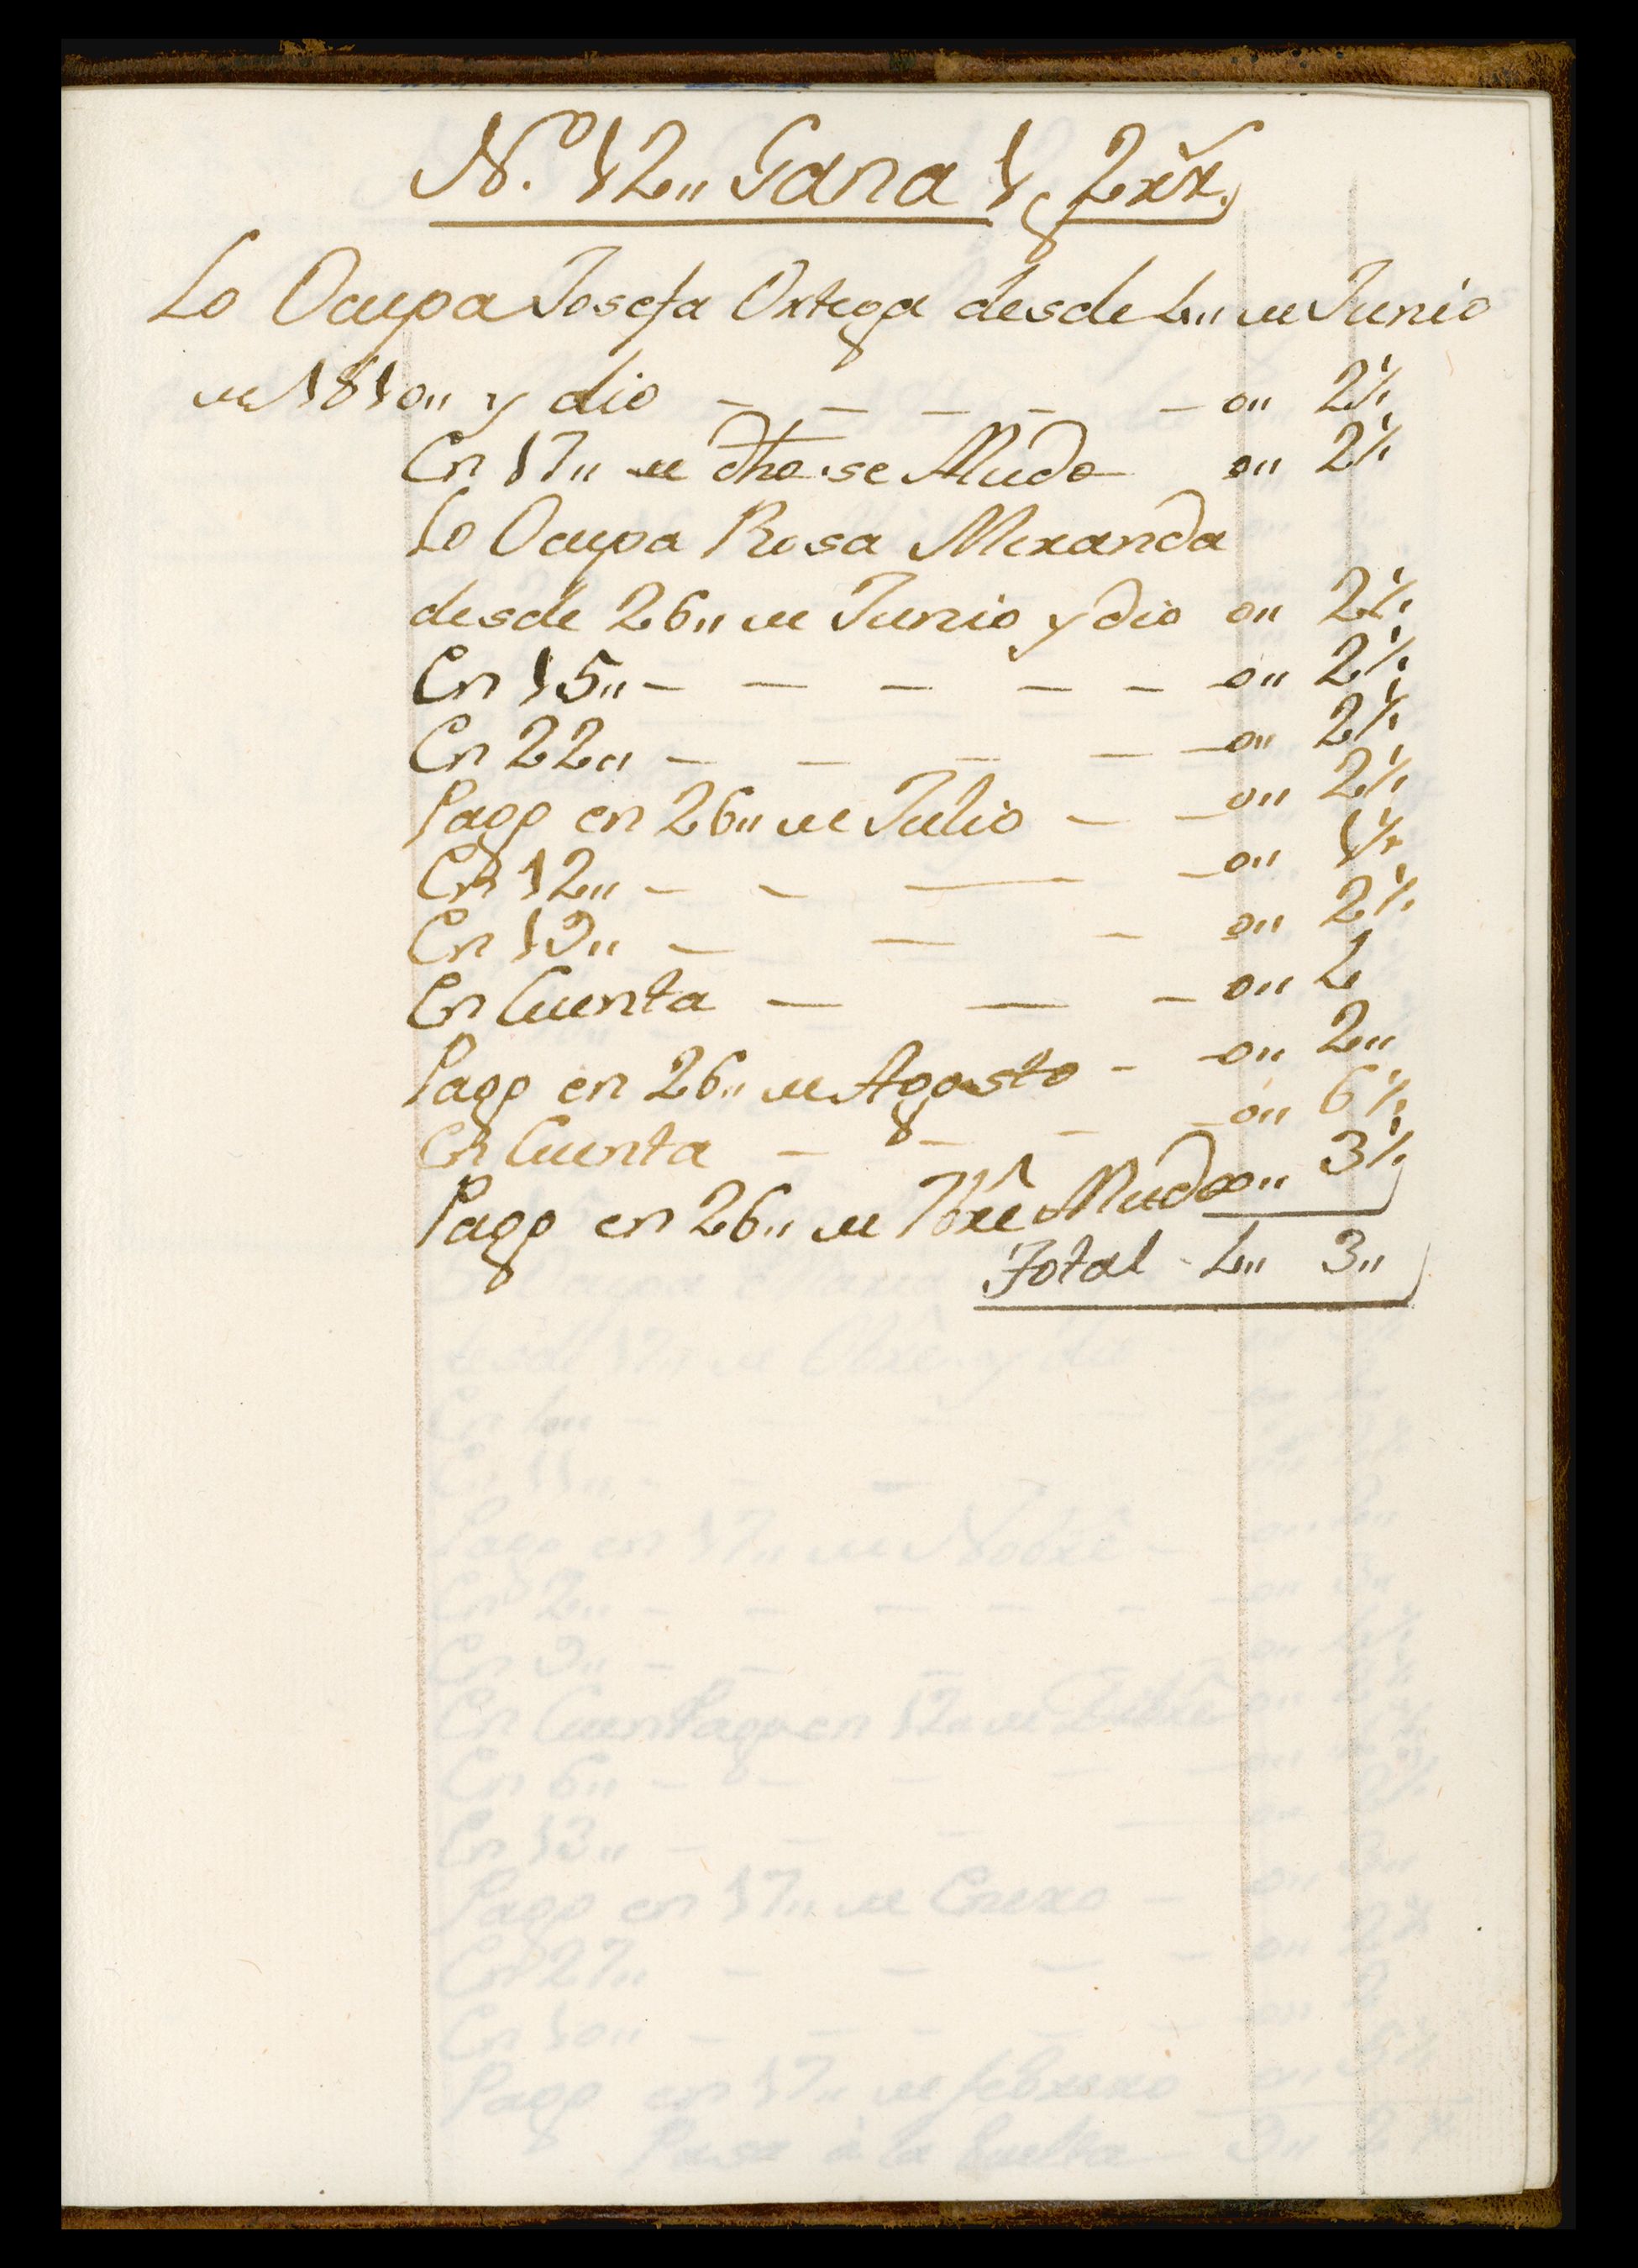 N.º 12,, Gana 1 p 2 rr.
Lo Ocupa Josefa Ortega desde 4,, de Junio
de 1810,, y dio — — — — — 0,, 2½
En 17,, de dho. se Mudo 0,, 2½
Lo Ocupa Rosa Meranda
desde 26,, de Junio y dio 0,, 2½
En 15,, — — — — — 0,, 2½
En 22,, — — — — — 0,, 2½
Pago en 26,, de Julio — — 0,, 2½
En 12,, — — — — 0,, 1½
En 19,, — — — 0,, 2½
En Cuenta — — — 0,, 4
Pago en 26,, de Agosto — 0,, 2,,
En Cuenta — — — — 0,, 6½
Pago en 26,, de 7bre Mudo 0,, 3½
Total 4,, 3,,